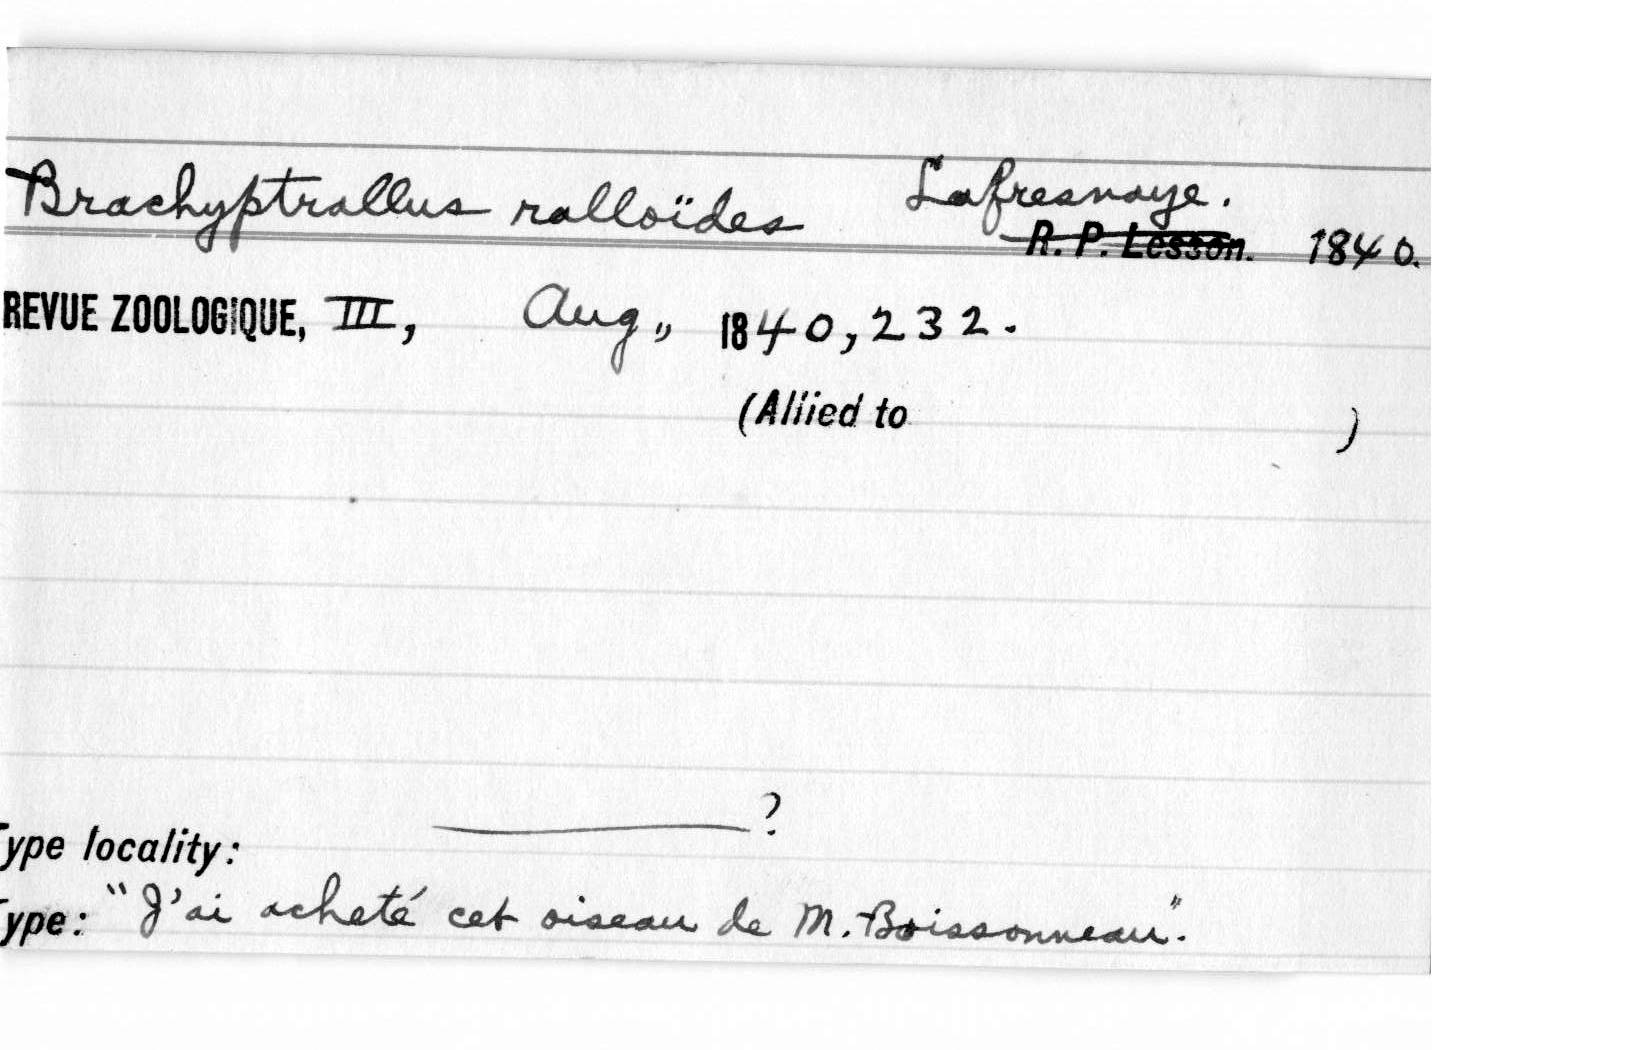 Brachyptrallus ralloïdes Lafresnaye.
R. P. Lesson. 1840.
REVUE ZOOLOGIQUE, III, Aug., 1840, 232.
(Allied to )
?
ype locality:
ype: "J'ai acheté cet oiseau de M. Boissonneau".